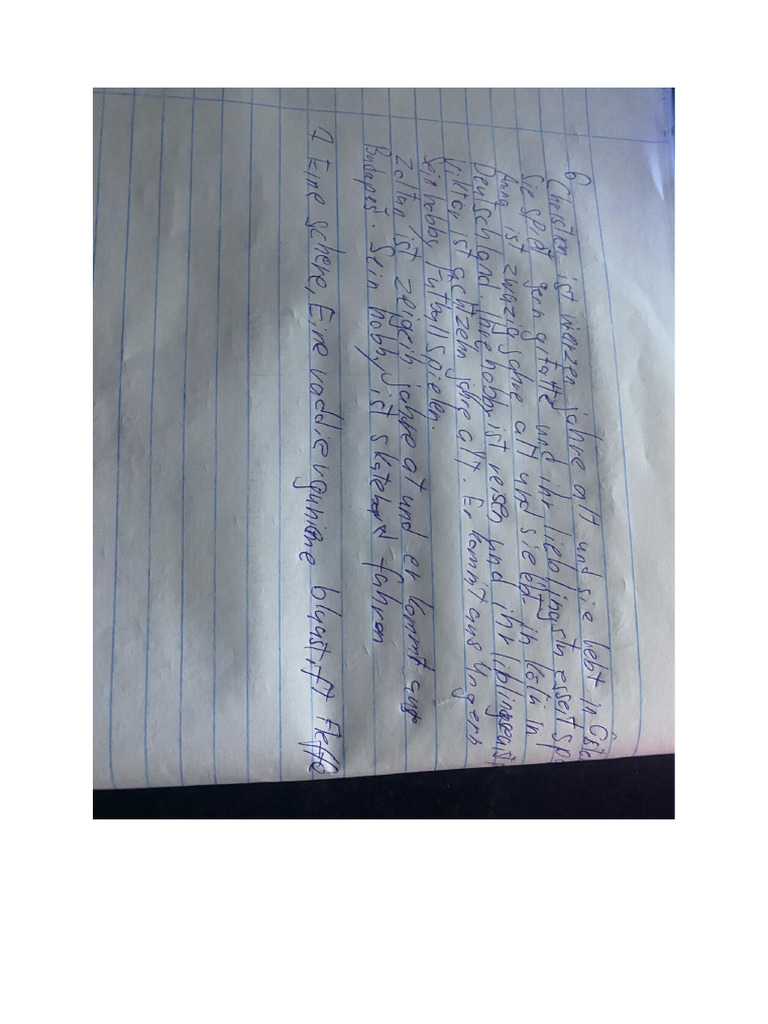 6
Christian ist vierzen jahre alt und sie lebt in
Sie spielt gern gitatte und ihr lieblings esseit
Anna ist zwazig jahre alt und sie lebt in Köln in
Deutschland. Ihre hobby ist reisen und ihr
Viktor ist achtzehn jahre alt. Er kommt aus Ungern
Sein hobby Futball spielen.
Zoltan ist jahre at und er kommt aus
Budapest. Sein hobby ist skatebord fahren
7 Eine schere, Eine